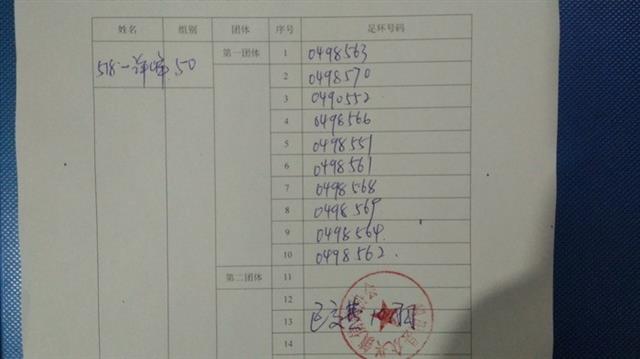 姓名 组别 团体 序号 足环号码
518一 50 第一团体 1 0498563
2 0498570
3 0490552
4 0498566
5 0498551
6 0498561
7 0498568
8 0498569
9 0498564
10 0498562.
第二团体 11
12
已交费
13
14